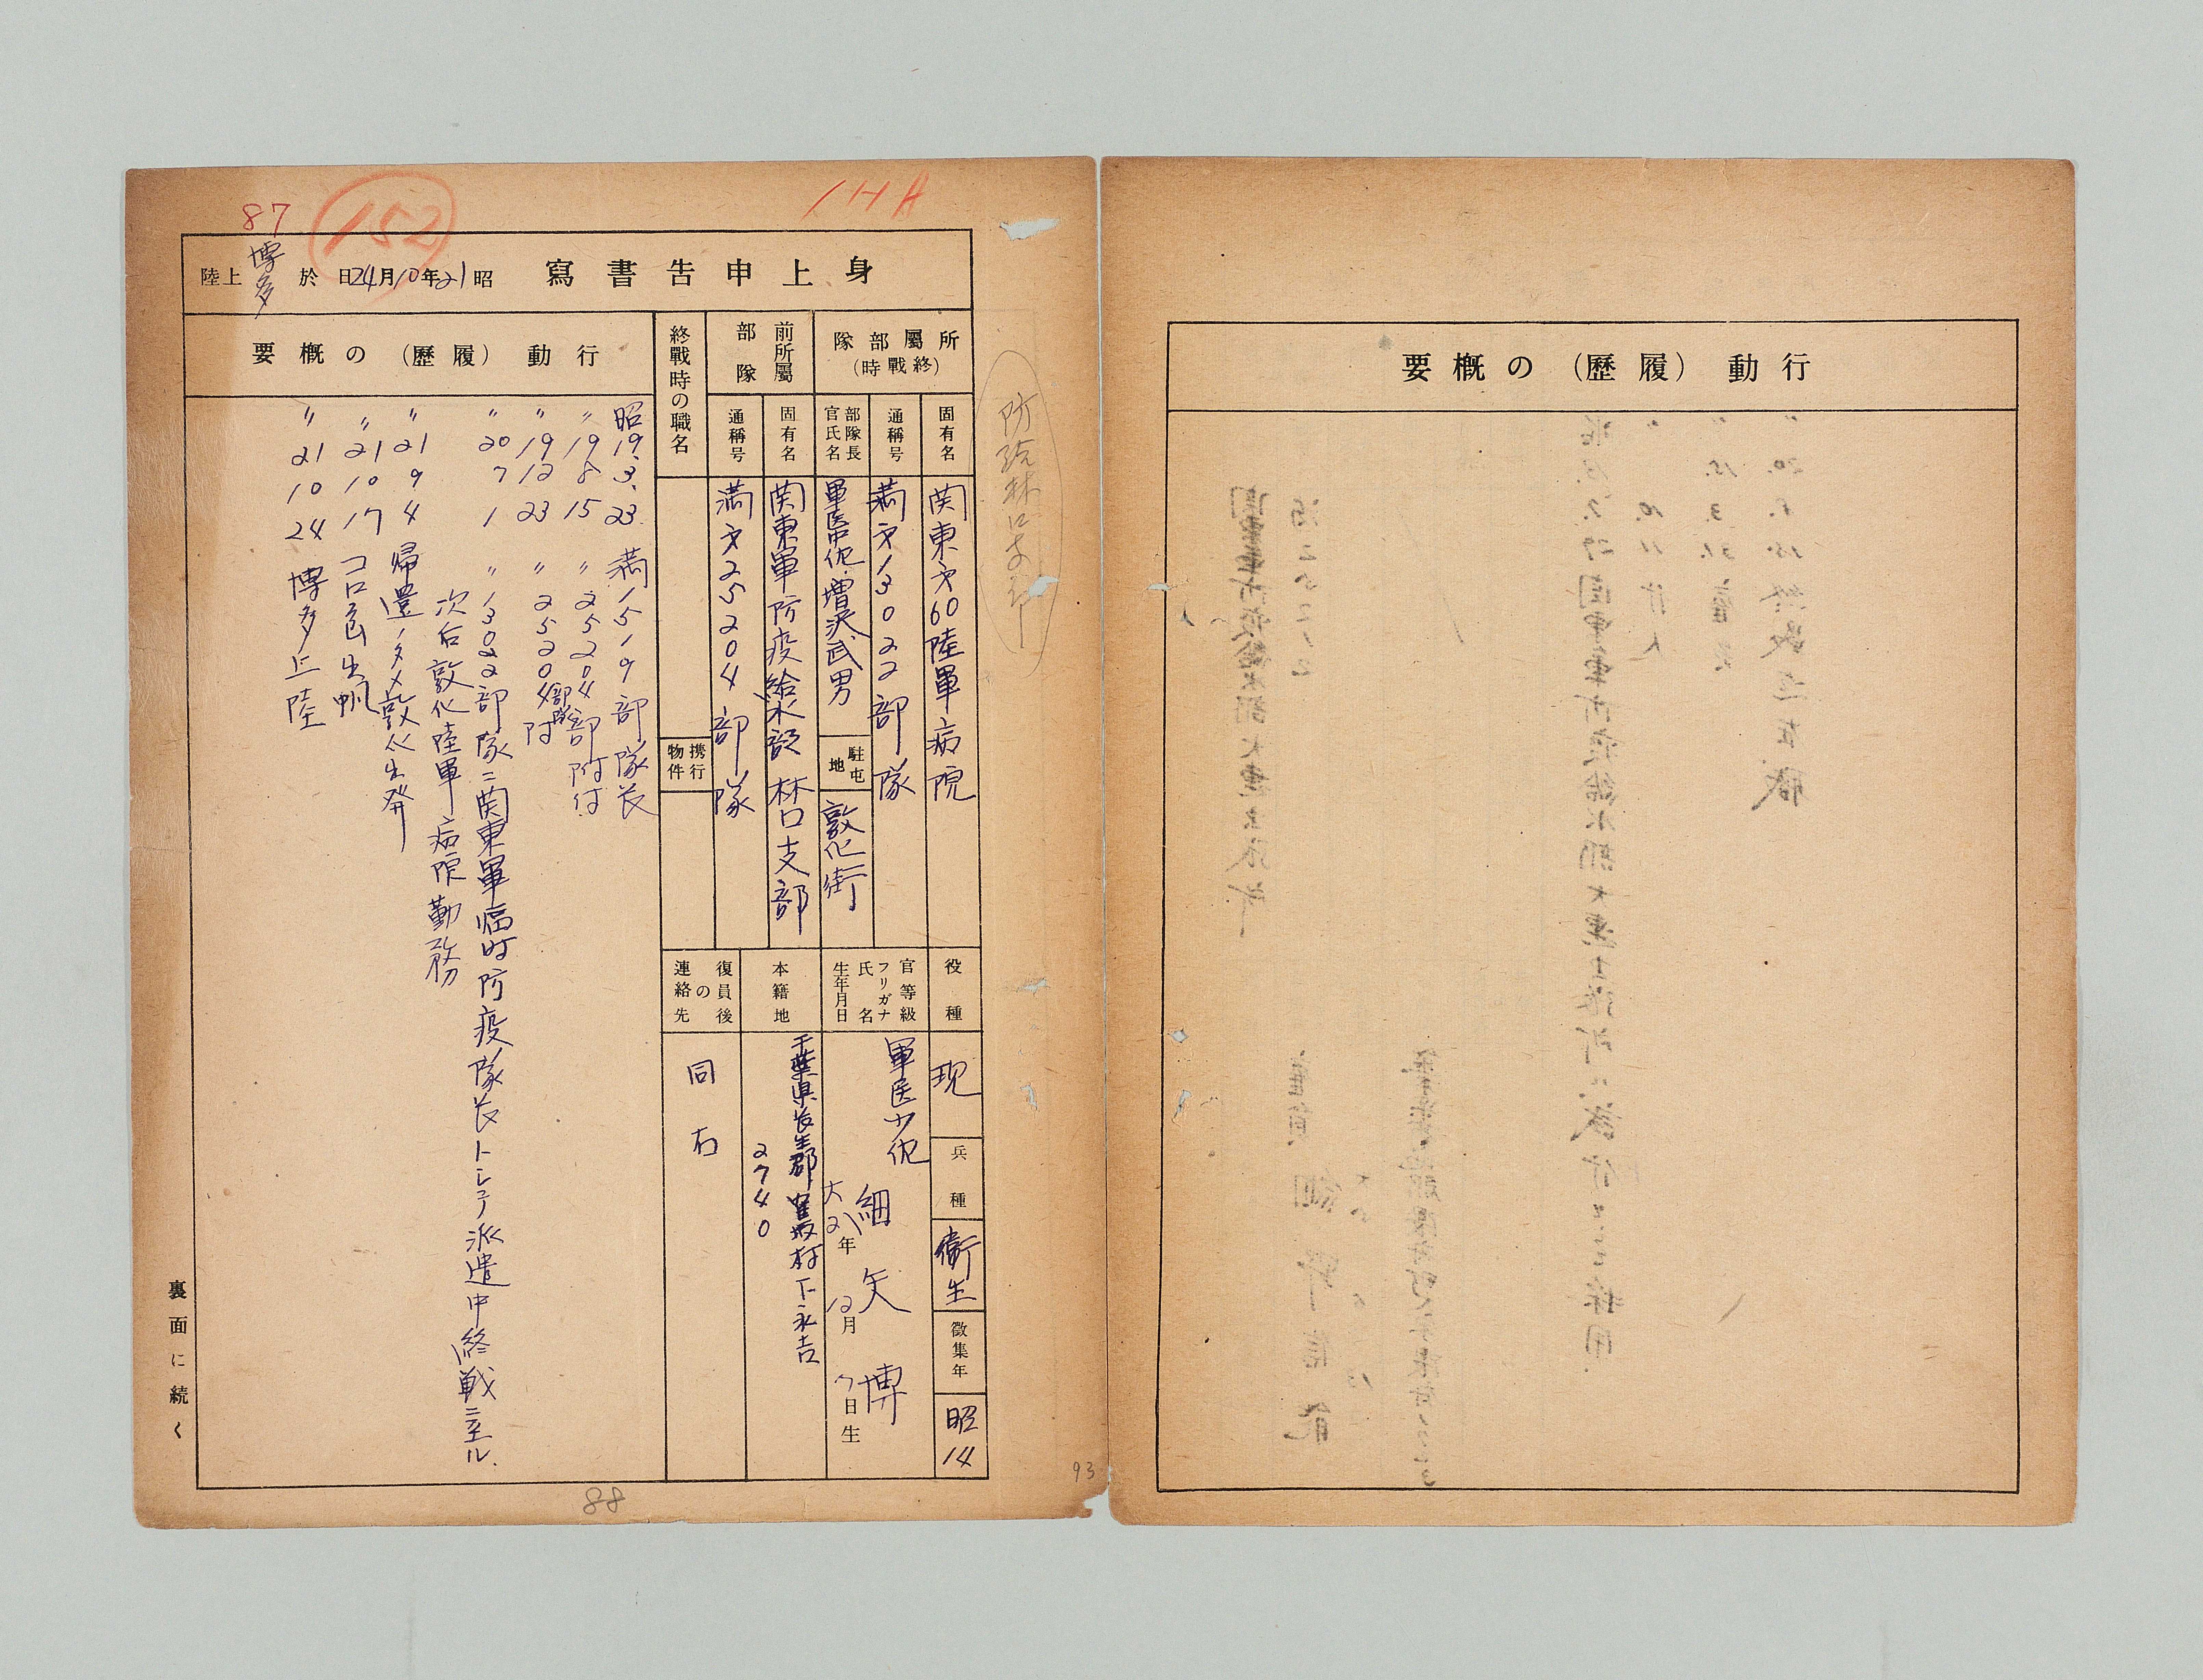 87
152
1HA
身上申告書寫
昭21年10月24日 於 博多 上陸
防疫林口支部
所屬部隊
(終戰時)
固有名
関東才60陸軍病院
通稱号
満才13022部隊
部隊長官氏名
軍医中佐 増沢武男
駐屯地
敦化街
前所屬部隊
固有名
関東軍防疫給水部 林口支部
通稱号
満才25204部隊
終戰時の職名
携行物件
役種
現
兵種
衛生
徴集年
昭14
官等級
フリガナ
氏名
生年月日
軍医少佐
細矢 博
大2年12月7日生
本籍地
千葉県長生郡 村下永吉
2740
復員後の連絡先
同右
行動(履歷)の概要
昭19.3.23. 満1519部隊長
〃 19 8 15 〃 25204部附付
〃 19 12 23 〃 25204部隊付
〃 20 7 1 〃 13022部隊ニ関東軍臨時防疫隊長トシテ派遣中終戦ニ至ル.
次后敦化陸軍病院勤務
〃 21 9 4 帰還ノタメ敦化出発
〃 21 10 17 コロ島出帆
〃 21 10 24 博多上陸
裏面に続く
88
93
行動(履歷)の概要